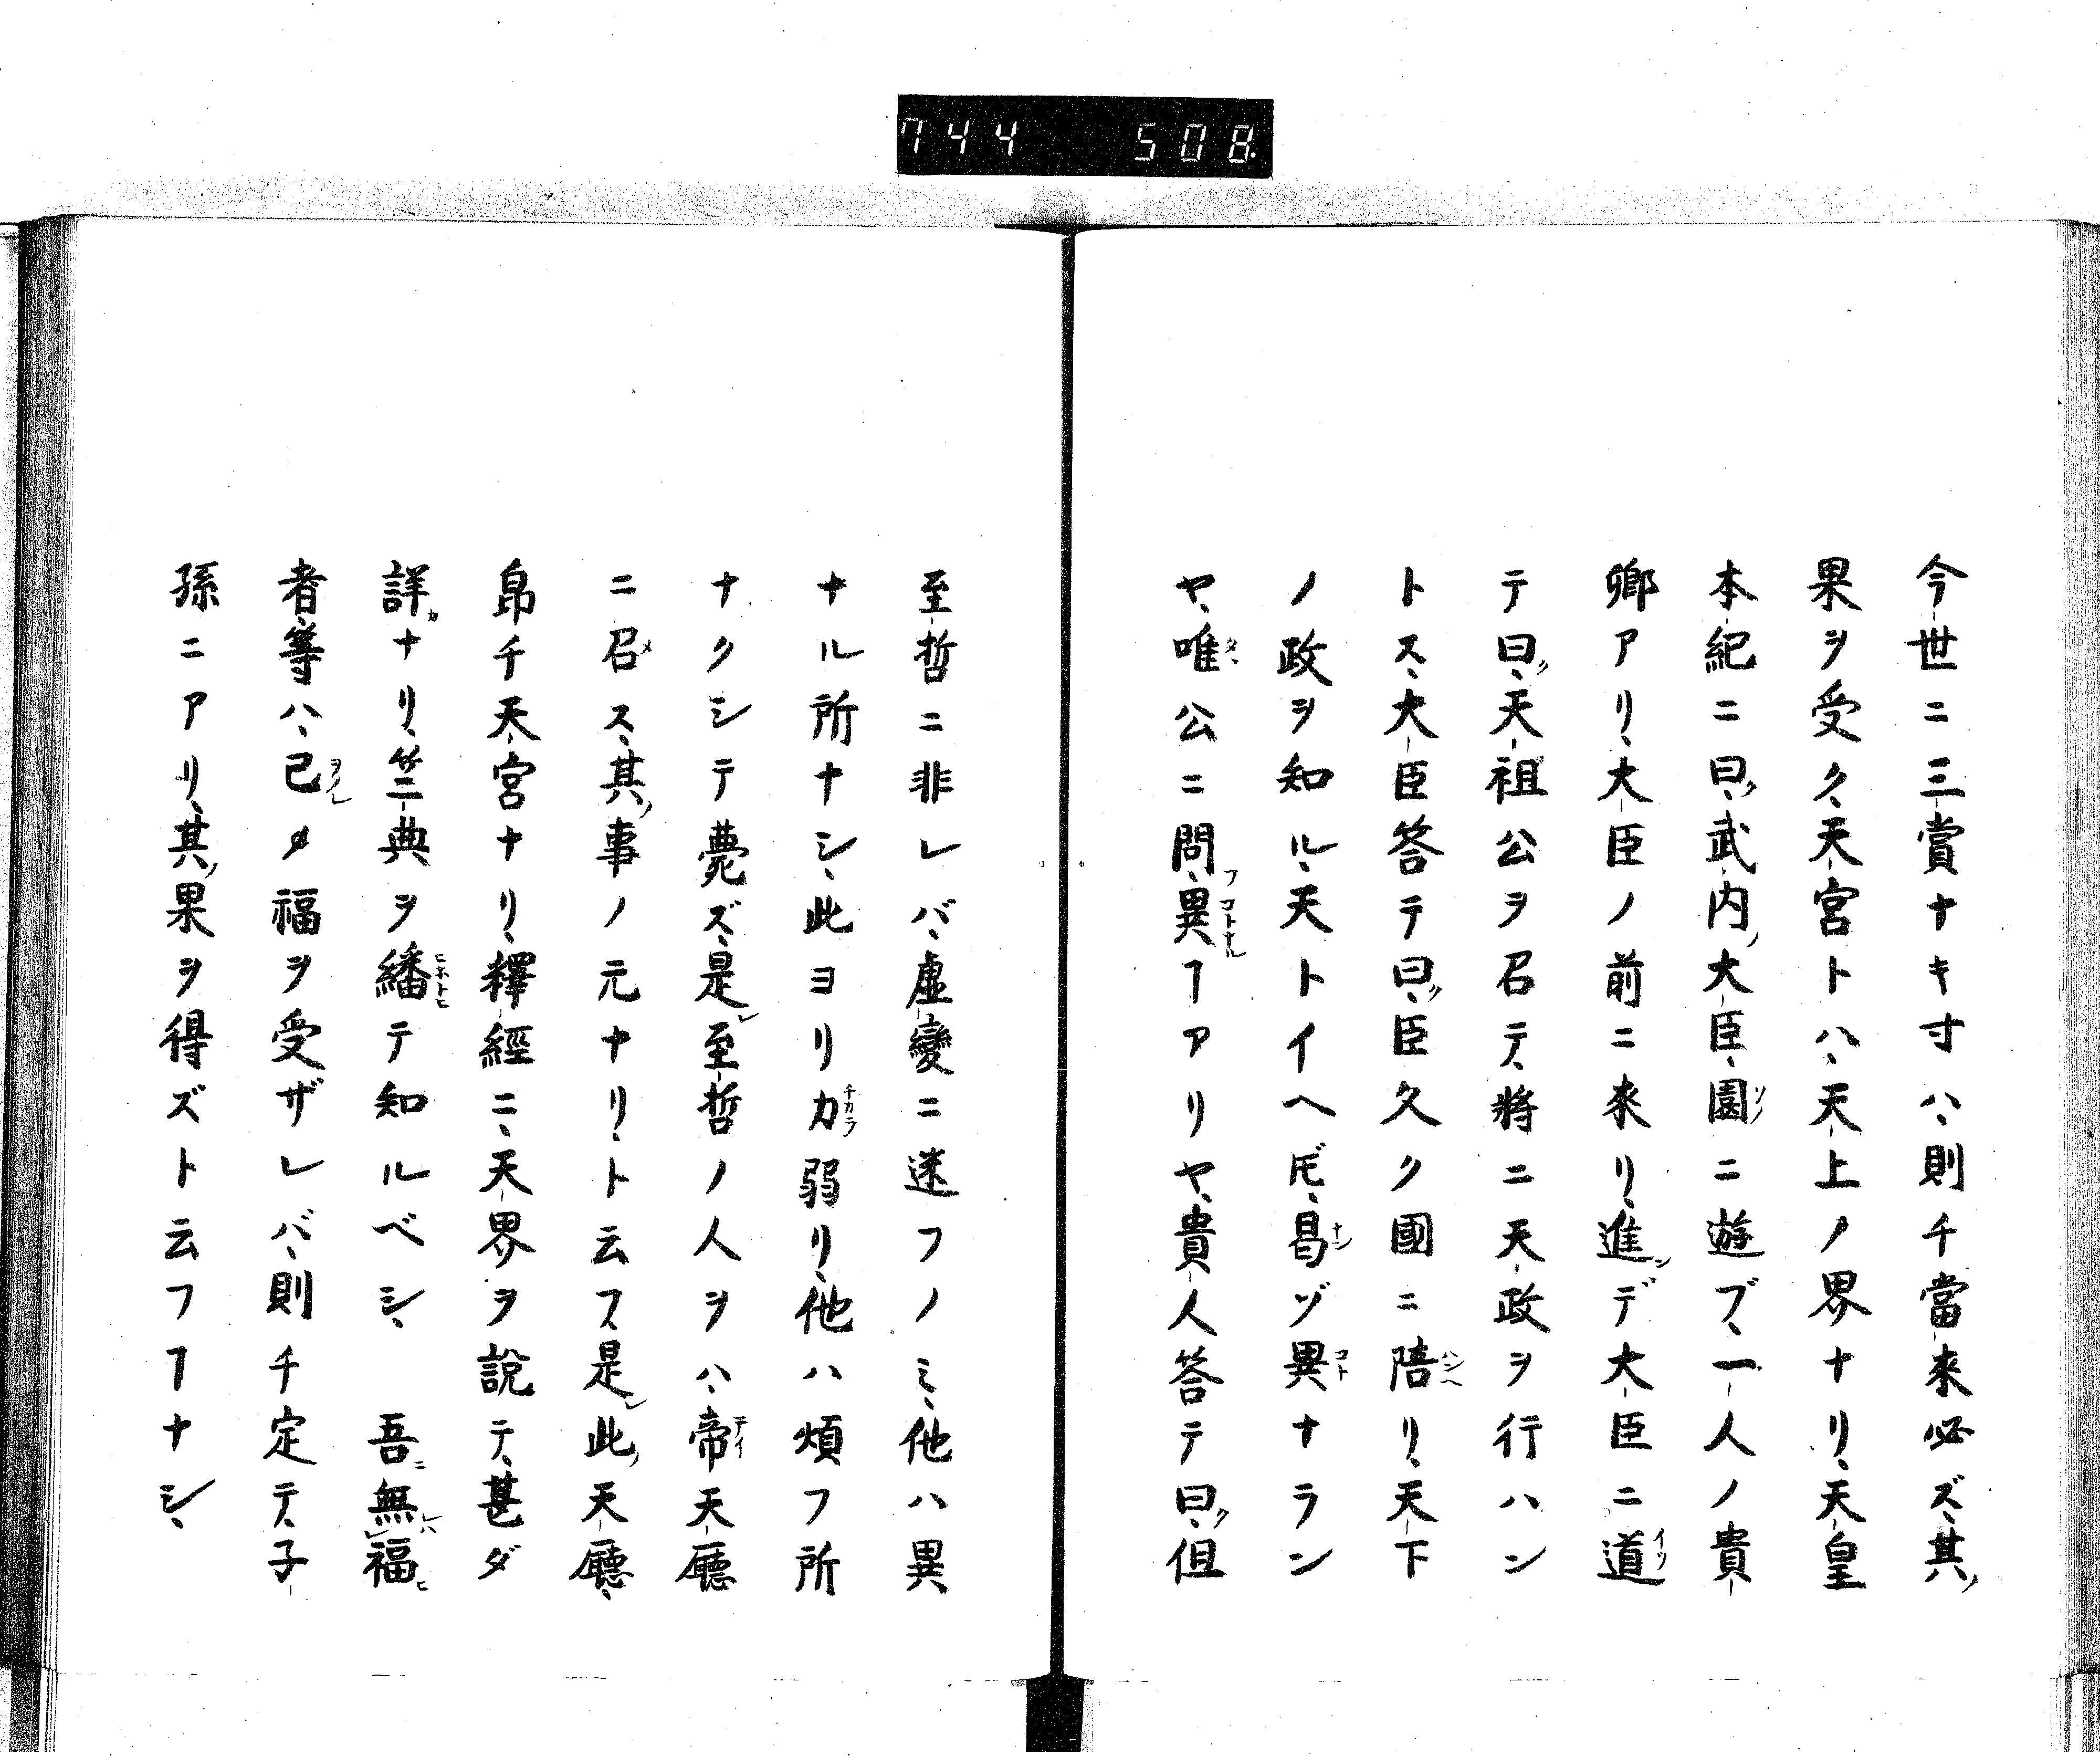 744 508
今世ニ三賞ナキ寸ハ、則チ當來必ズ、其ノ
果ヲ受ク、天宮トハ、天上ノ界ナリ、天皇
本紀ニ曰ク、武内ノ大臣、園ニ遊ブ、一人ノ貴
卿アリ、大臣ノ前ニ來リ、進ンデ大臣ニ道
テ曰ク、天祖公ヲ召テ、將ニ天政ヲ行ハン
トス、大臣答テ曰ク、臣久ク國ニ陪リ、天下
ノ政ヲ知ル、天トイヘ𪜈、曷ゾ異ナラン
ヤ、唯公ニ問、異ヿアリヤ、貴人答テ曰ク、但
至哲ニ非レバ、虚變ニ迷フノミ、他ハ異
ナル所ナシ、此ヨリ力弱リ、他ハ煩フ所
ナクシテ薨ズ、是レ至哲ノ人ヲハ、帝天廳
ニ召ス、其ノ事ノ元ナリ、ト云フ、是レ此ノ天廳、
帛チ天宮ナリ、釋經ニ、天界ヲ說テ、甚ダ
詳カナリ、竺典ヲ繙テ知ルベシ、 吾ニ無レハ福ヒ
者、等ハ、己レメ福ヲ受ザレバ、則チ定テ、子
孫ニアリ、其ノ果ヲ得ズト云フヿナシ、